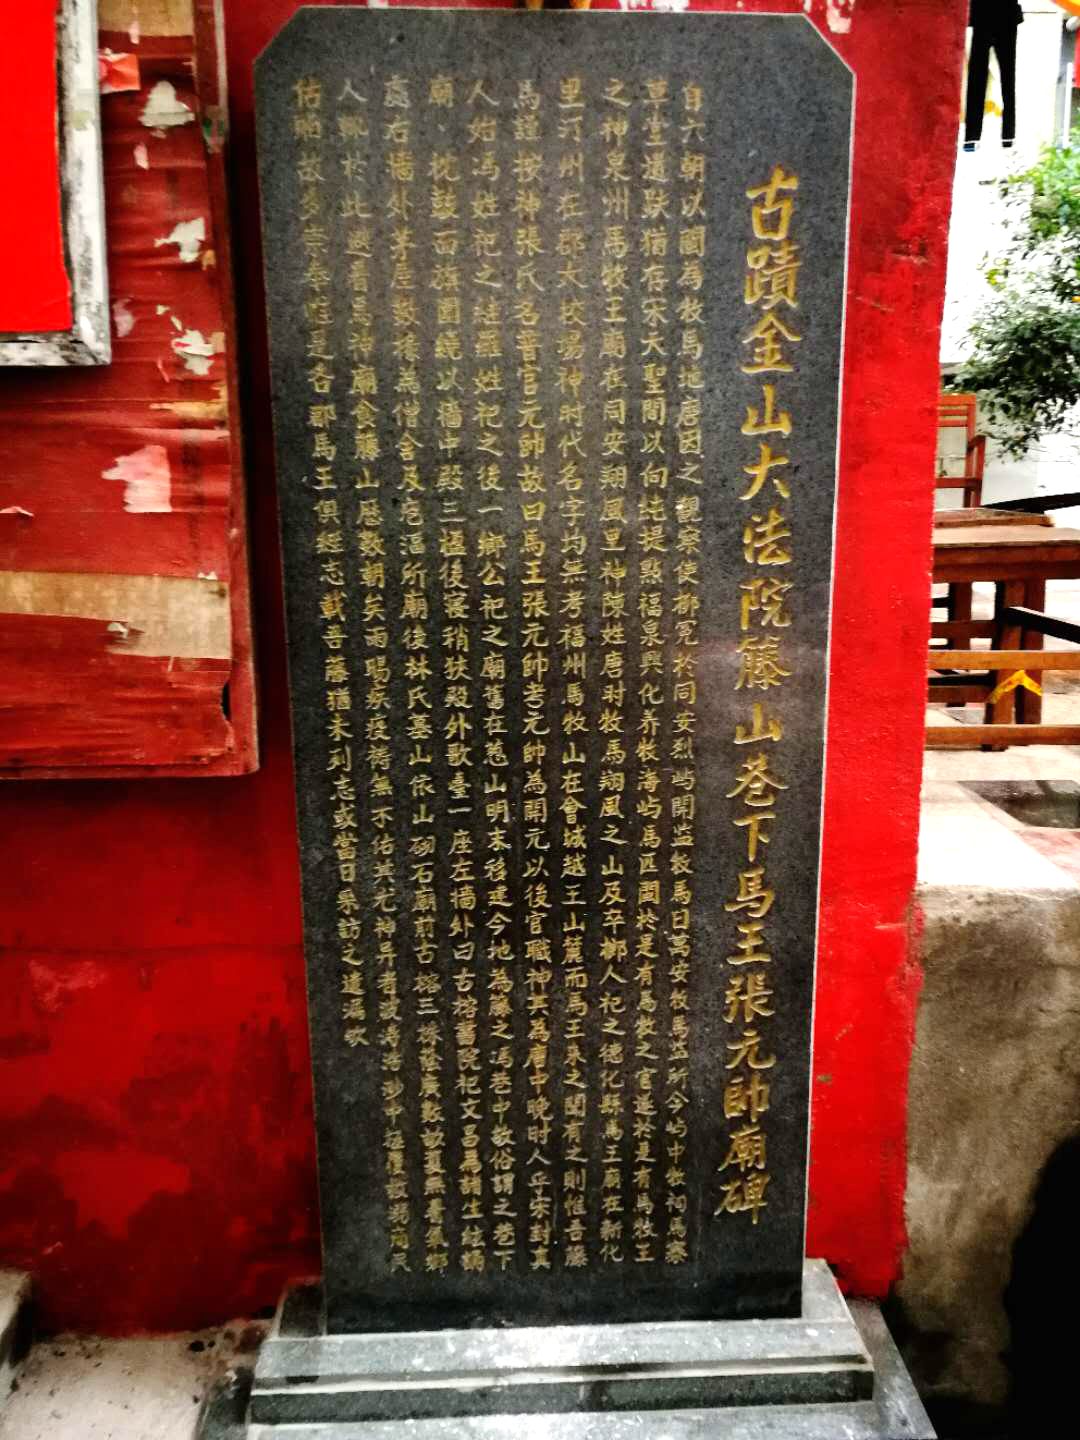 古蹟金山大法院籐山巷下馬王張元帥廟碑
自六朝以閩為牧馬地唐因之觀察使柳冕於同安烈屿開監牧馬曰萬安牧馬监所今屿中牧祠馬寨
草堂遺趺猶存宋大聖間以向純提點福泉興化养牧海屿馬匹閩於是有馬牧之官遂於是有馬牧王
之神泉州馬牧王廟在同安翔風里神陳姓唐时牧馬翔風之山及卒鄉人祀之德化縣馬王廟在新化
里汀州在郡大校場神时代名字均無考福州馬牧山在會城越王山麓而馬王未之聞有之則惟吾藤
馬謹按神張氏名普官元帥故曰馬王張元帥考元帥為開元以後官職神其為唐中晚时人乒宋封真
人始馮姓祀之继羅姓祀之後一鄉公祀之廟舊在慈山明末移建今地為藤之馮巷中故俗謂之巷下
廟、枕鼓面旗圍繞以墙中殿三楹後寝稍狭殿外歌臺一座左墙外曰古榕書院祀文昌為諸生絃誦
處右墙外茅屋数椽為僧舍及庖湢所廟後林氏墓山依山砌石廟前古榕三株蔭廣數畝夏無暑氣鄉
人於此避暑焉神廟食藤山歷數朝矣雨賜疾疫祷無不佑其尤神异者波涛浩渺中拯覆
佑故多崇奉惟是各郡馬王俱經志載吾藤猶未列志或當日采訪之遺漏欤